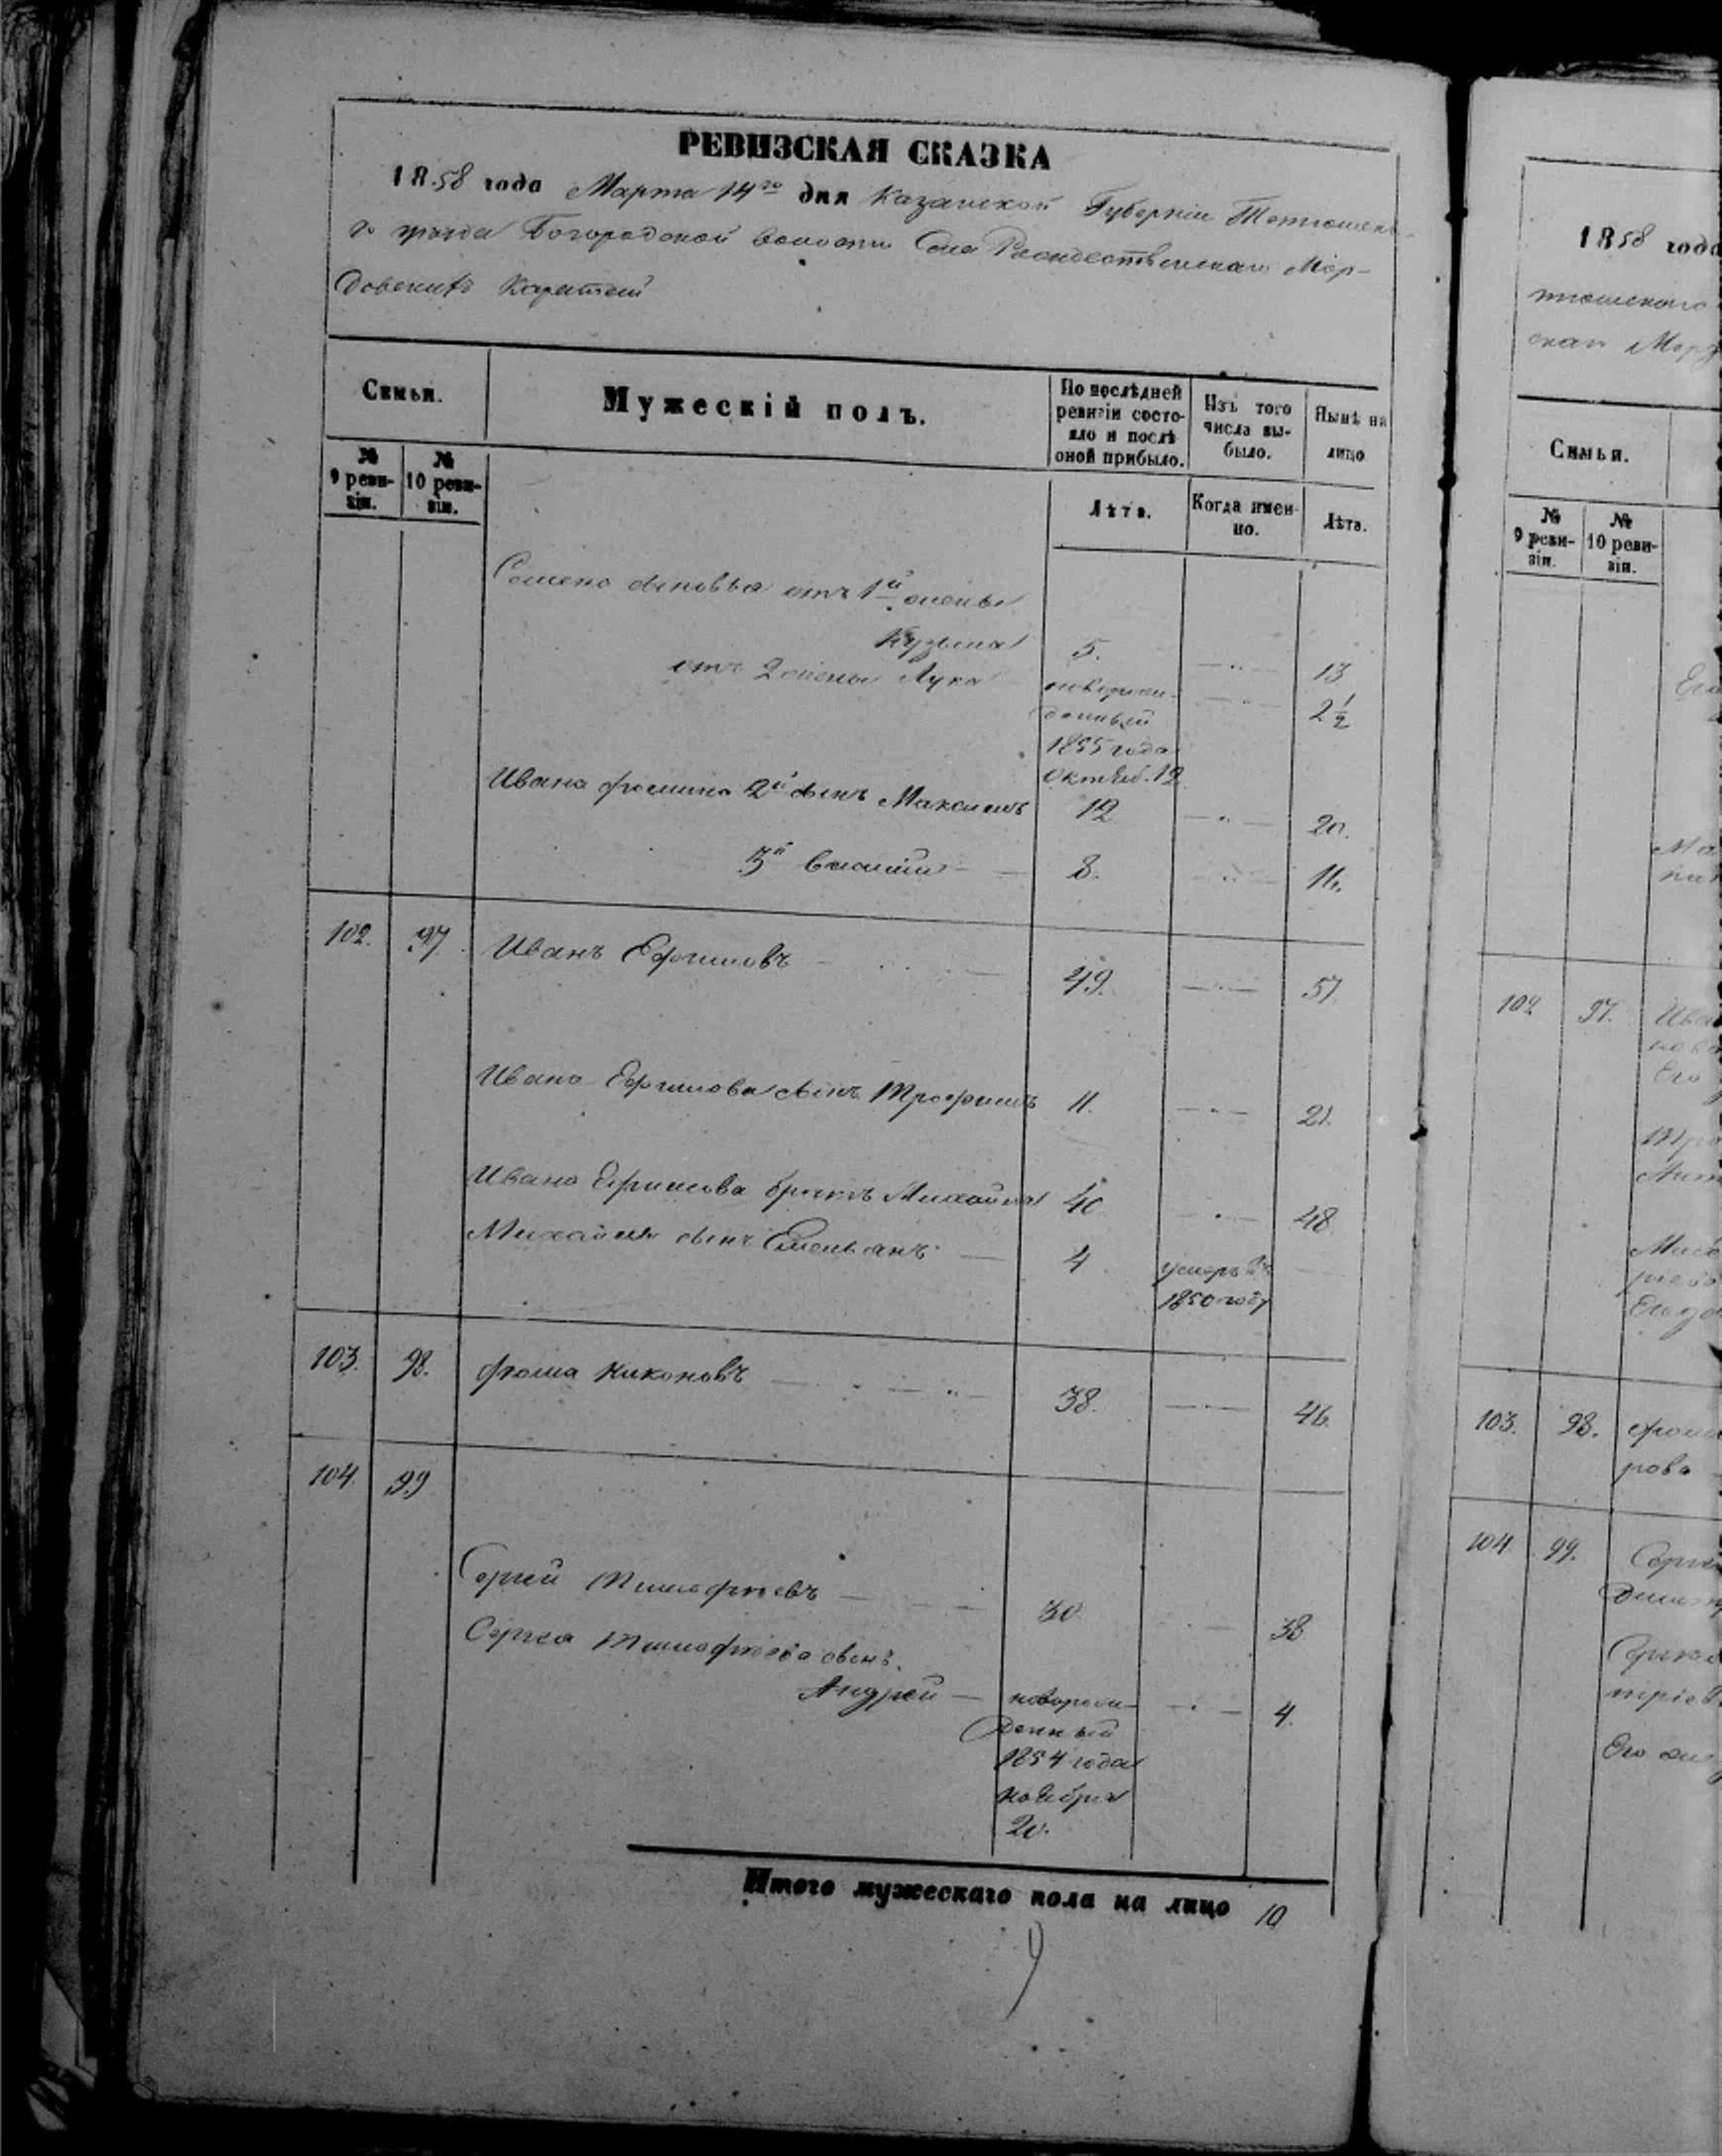 РЕВИЗСКАЯ СКАЗКА
1858 года Марта 14го дня Казанской Губернiи Тетюшска-
го уѣзда Богородской волости Села Рождественскаго Мор-
довскихъ Каратаей
Семьи.
Мужескiй полъ.
По послѣдней ревизiи состояло и послѣ оной прибыло.
Изъ того числа выбыло.
Нынѣ на лицо
№ 9 ревизiи.
№ 10 ревизiи.
Лѣта.
Когда именно.
Лѣта.
Семена сыновья отъ 1й жены
Кузьма 5. 13
отъ 2 жены Лука новорож- 2½
денный
1855 года
Октяб. 12
Ивана Фомина 2й сынъ Максимъ 12 20.
3й Василiй 8. 16.
102. 97. Иванъ Ефимовъ 49. 57
Ивана Ефимова сынъ Трофимъ 11. 21.
Ивана Ефимова братъ Михайла 40 48
Михайлы сынъ Емельянъ 4 умеръ въ
1850 году
103. 98. Фома Никоновъ 38. 46.
104. 99
Сергѣй Тимофѣевъ 30 38
Сергѣя Тимофѣева сынъ
Андрей новорож- 4.
денный
1854 года
ноября
20.
Итого мужескаго пола на лицо 10
1858 года
тюшскаго
Семьи.
№ 9 ревизiи.
№ 10 ревизiи.
102 97.
Его
103. 98.
рова
104 99.